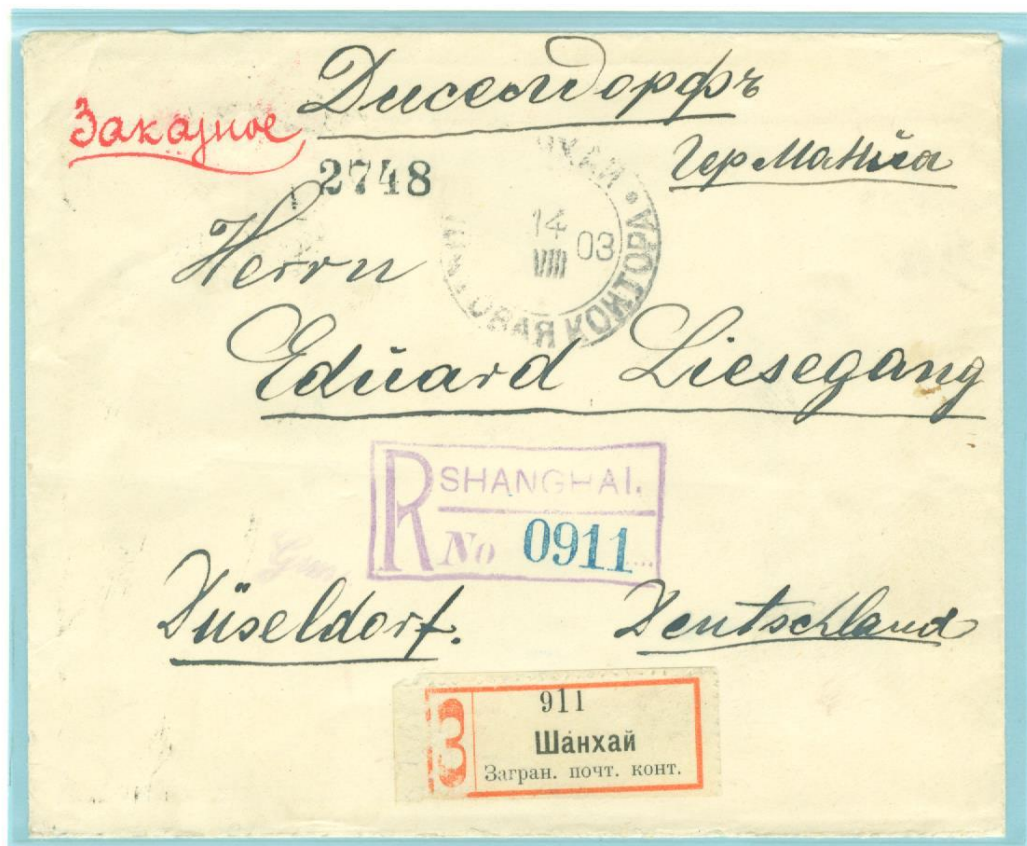 Диселдорфъ
Заказное
Германiя
2748
ШАНХАЙ
14
VIII
03
ПОЧТОВАЯ КОНТОРА
Herrn
Eduard Liesegang
R SHANGHAI.
No 0911
Düseldorf. Deutschland
З
911
Шанхай
Загран. почт. конт.